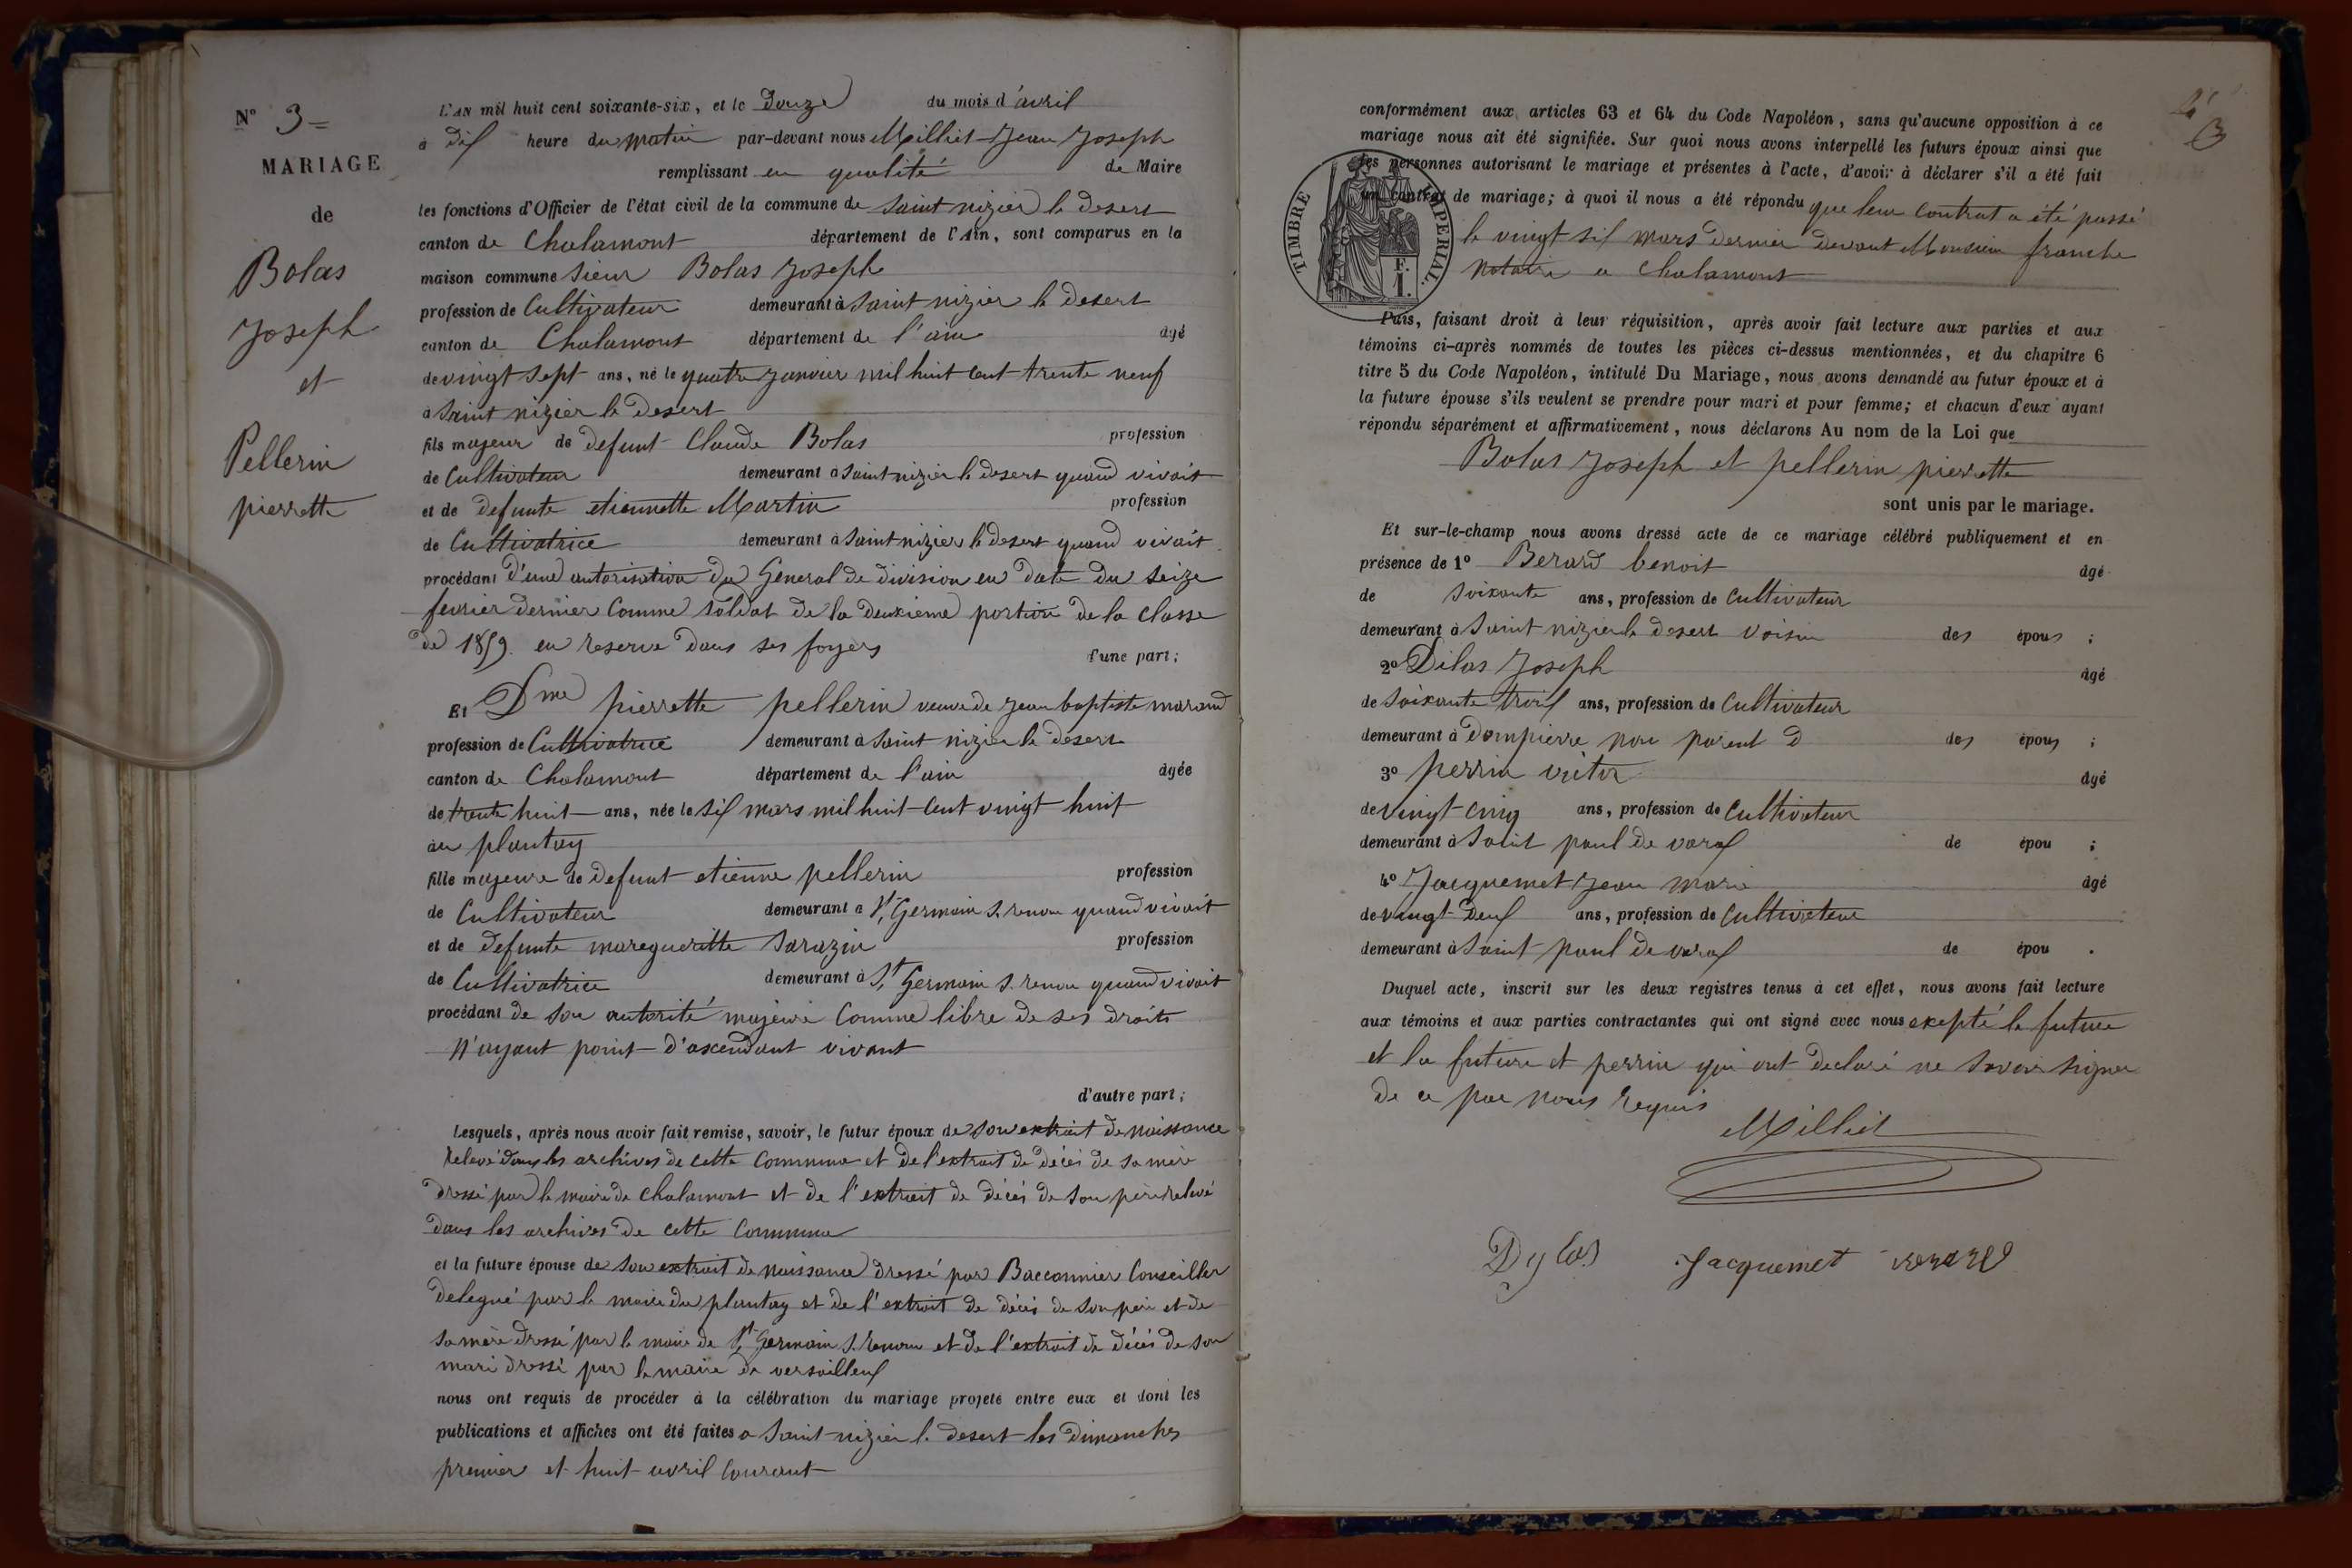 N° 3=
MARIAGE
de
Bolas
Joseph
et
Pellerin
pierrette
L'AN mil huit cent soixante-six, et le Douze du mois d'avril
à dix heure du matin par-devant nous Milliet Jean Joseph
remplissant en qualité de Maire
les fonctions d'Officier de l'état civil de la commune de Saint nizier le desert
canton de Chalamont département de l'Ain, sont comparus en la
maison commune sieur Bolas Joseph
profession de Cultivateur demeurant à Saint nizier le desert
canton de Chalamont département de l'ain âgé
de vingt sept ans, né le quatre janvier mil huit cent trente neuf
à Saint nizier le desert
fils majeur de defunt Claude Bolas profession
de Cultivateur demeurant à Saint nizier le desert quand vivait
et de defunte etiennette Martin profession
de Cultivatrice demeurant à Saint nizier le desert quand vivait
procédant d'une autorisation du General de division en date du seize
fevrier dernier Comme soldat de la deuxieme portion de la classe
de 1859 en reserve dans ses foyers
d'une part;
Et Dme pierrette pellerin veuve de jean baptiste marand
profession de Cultivatrice demeurant à Saint nizier le desert
canton de Chalamont département de l'ain âgée
de trente huit ans, née le six mars mil huit cent vingt huit
au plantay
fille majeure de defunt etienne pellerin profession
de Cultivateur demeurant a St Germain s. renon quand vivait
et de defunte maregueritte Sarazin profession
de Cultivatrice demeurant à St Germain s. renon quand vivait
procédant de son autorité majeure Comme libre de ses droits
N'ayant point d'ascendant vivant
d'autre part;
Lesquels, après nous avoir fait remise, savoir, le futur époux de son extrait de naissance
relevé dans les archives de cette Commune et de l'extrait de décés de sa mère
dressé par le maire de Chalamont et de l'extrait de décés de son père relevé
dans les archives de cette Commune
et la future épouse de son extrait de naissance dressé par Baccannier Conseiller
delegué par le maire du plantay et de l'extrait de décés de son père et de
sa mère dressé par le maire de St Germain s. renon et de l'extrait de décés de son
mari dressé par le maire de versailleux
nous ont requis de procéder à la célébration du mariage projeté entre eux et dont les
publications et affiches ont été faites a Saint nizier le desert les dimanches
premier et huit avril Courant
3
conformément aux articles 63 et 64 du Code Napoléon, sans qu'aucune opposition à ce
mariage nous ait été signifiée. Sur quoi nous avons interpellé les futurs époux ainsi que
les personnes autorisant le mariage et présentes à l'acte, d'avoir à déclarer s'il a été fait
un contrat de mariage; à quoi il nous a été répondu que leur Contrat a été passé
le vingt six mars dernier devant Monsieur franche
notaire a Chalamont
TIMBRE IMPERIAL.
F.
1.
Puis, faisant droit à leur réquisition, après avoir fait lecture aux parties et aux
témoins ci-après nommés de toutes les pièces ci-dessus mentionnées, et du chapitre 6
titre 5 du Code Napoléon, intitulé Du Mariage, nous avons demandé au futur époux et à
la future épouse s'ils veulent se prendre pour mari et pour femme; et chacun d'eux ayant
répondu séparément et affirmativement, nous déclarons Au nom de la Loi que
Bolas Joseph et pellerin pierrette
sont unis par le mariage.
Et sur-le-champ nous avons dressé acte de ce mariage célébré publiquement et en
présence de 1° Berard benoit âgé
de Soixante ans, profession de Cultivateur
demeurant à Saint nizier le desert voisin des épous ;
2° Dilas Joseph âgé
de Soixante trois ans, profession de Cultivateur
demeurant à dompierre non parent d des épous ;
3° perrin victor âgé
de vingt cinq ans, profession de Cultivateur
demeurant à Saint paul de varax de épou ;
4° Jacquemet Jean marie âgé
de vingt deux ans, profession de Cultivateur
demeurant à Saint paul de varax de épou .
Duquel acte, inscrit sur les deux registres tenus à cet effet, nous avons fait lecture
aux témoins et aux parties contractantes qui ont signé avec nous exepté le futur
et la future et perrin qui ont declaré ne savoir signer
de ce par nous requis
Milliet
Dylas Jacquemet Berard